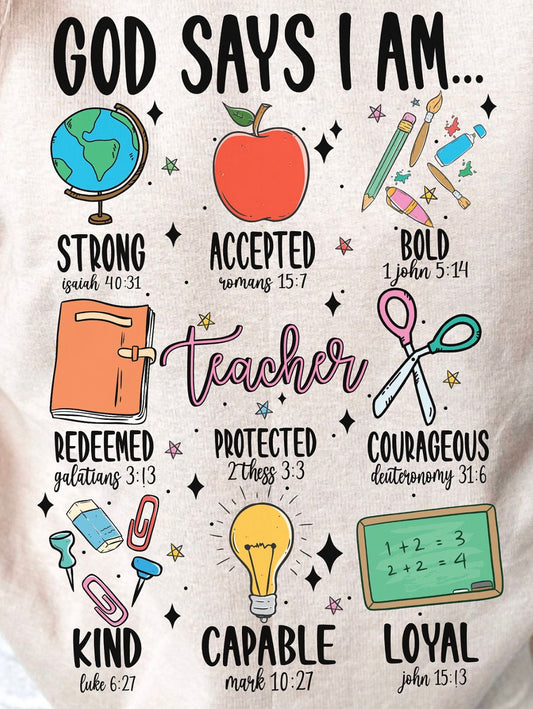 GOD SAYS I AM...
STRONG ACCEPTED BOLD
isaiah 40:31 romans 15:7 1 john 5:14
teacher
REDEEMED PROTECTED COURAGEOUS
galatians 3:13 2 thess 3:3 deuteronomy 31:6
1 + 2 = 3
2 + 2 = 4
KIND CAPABLE LOYAL
luke 6:27 mark 10:27 john 15:13